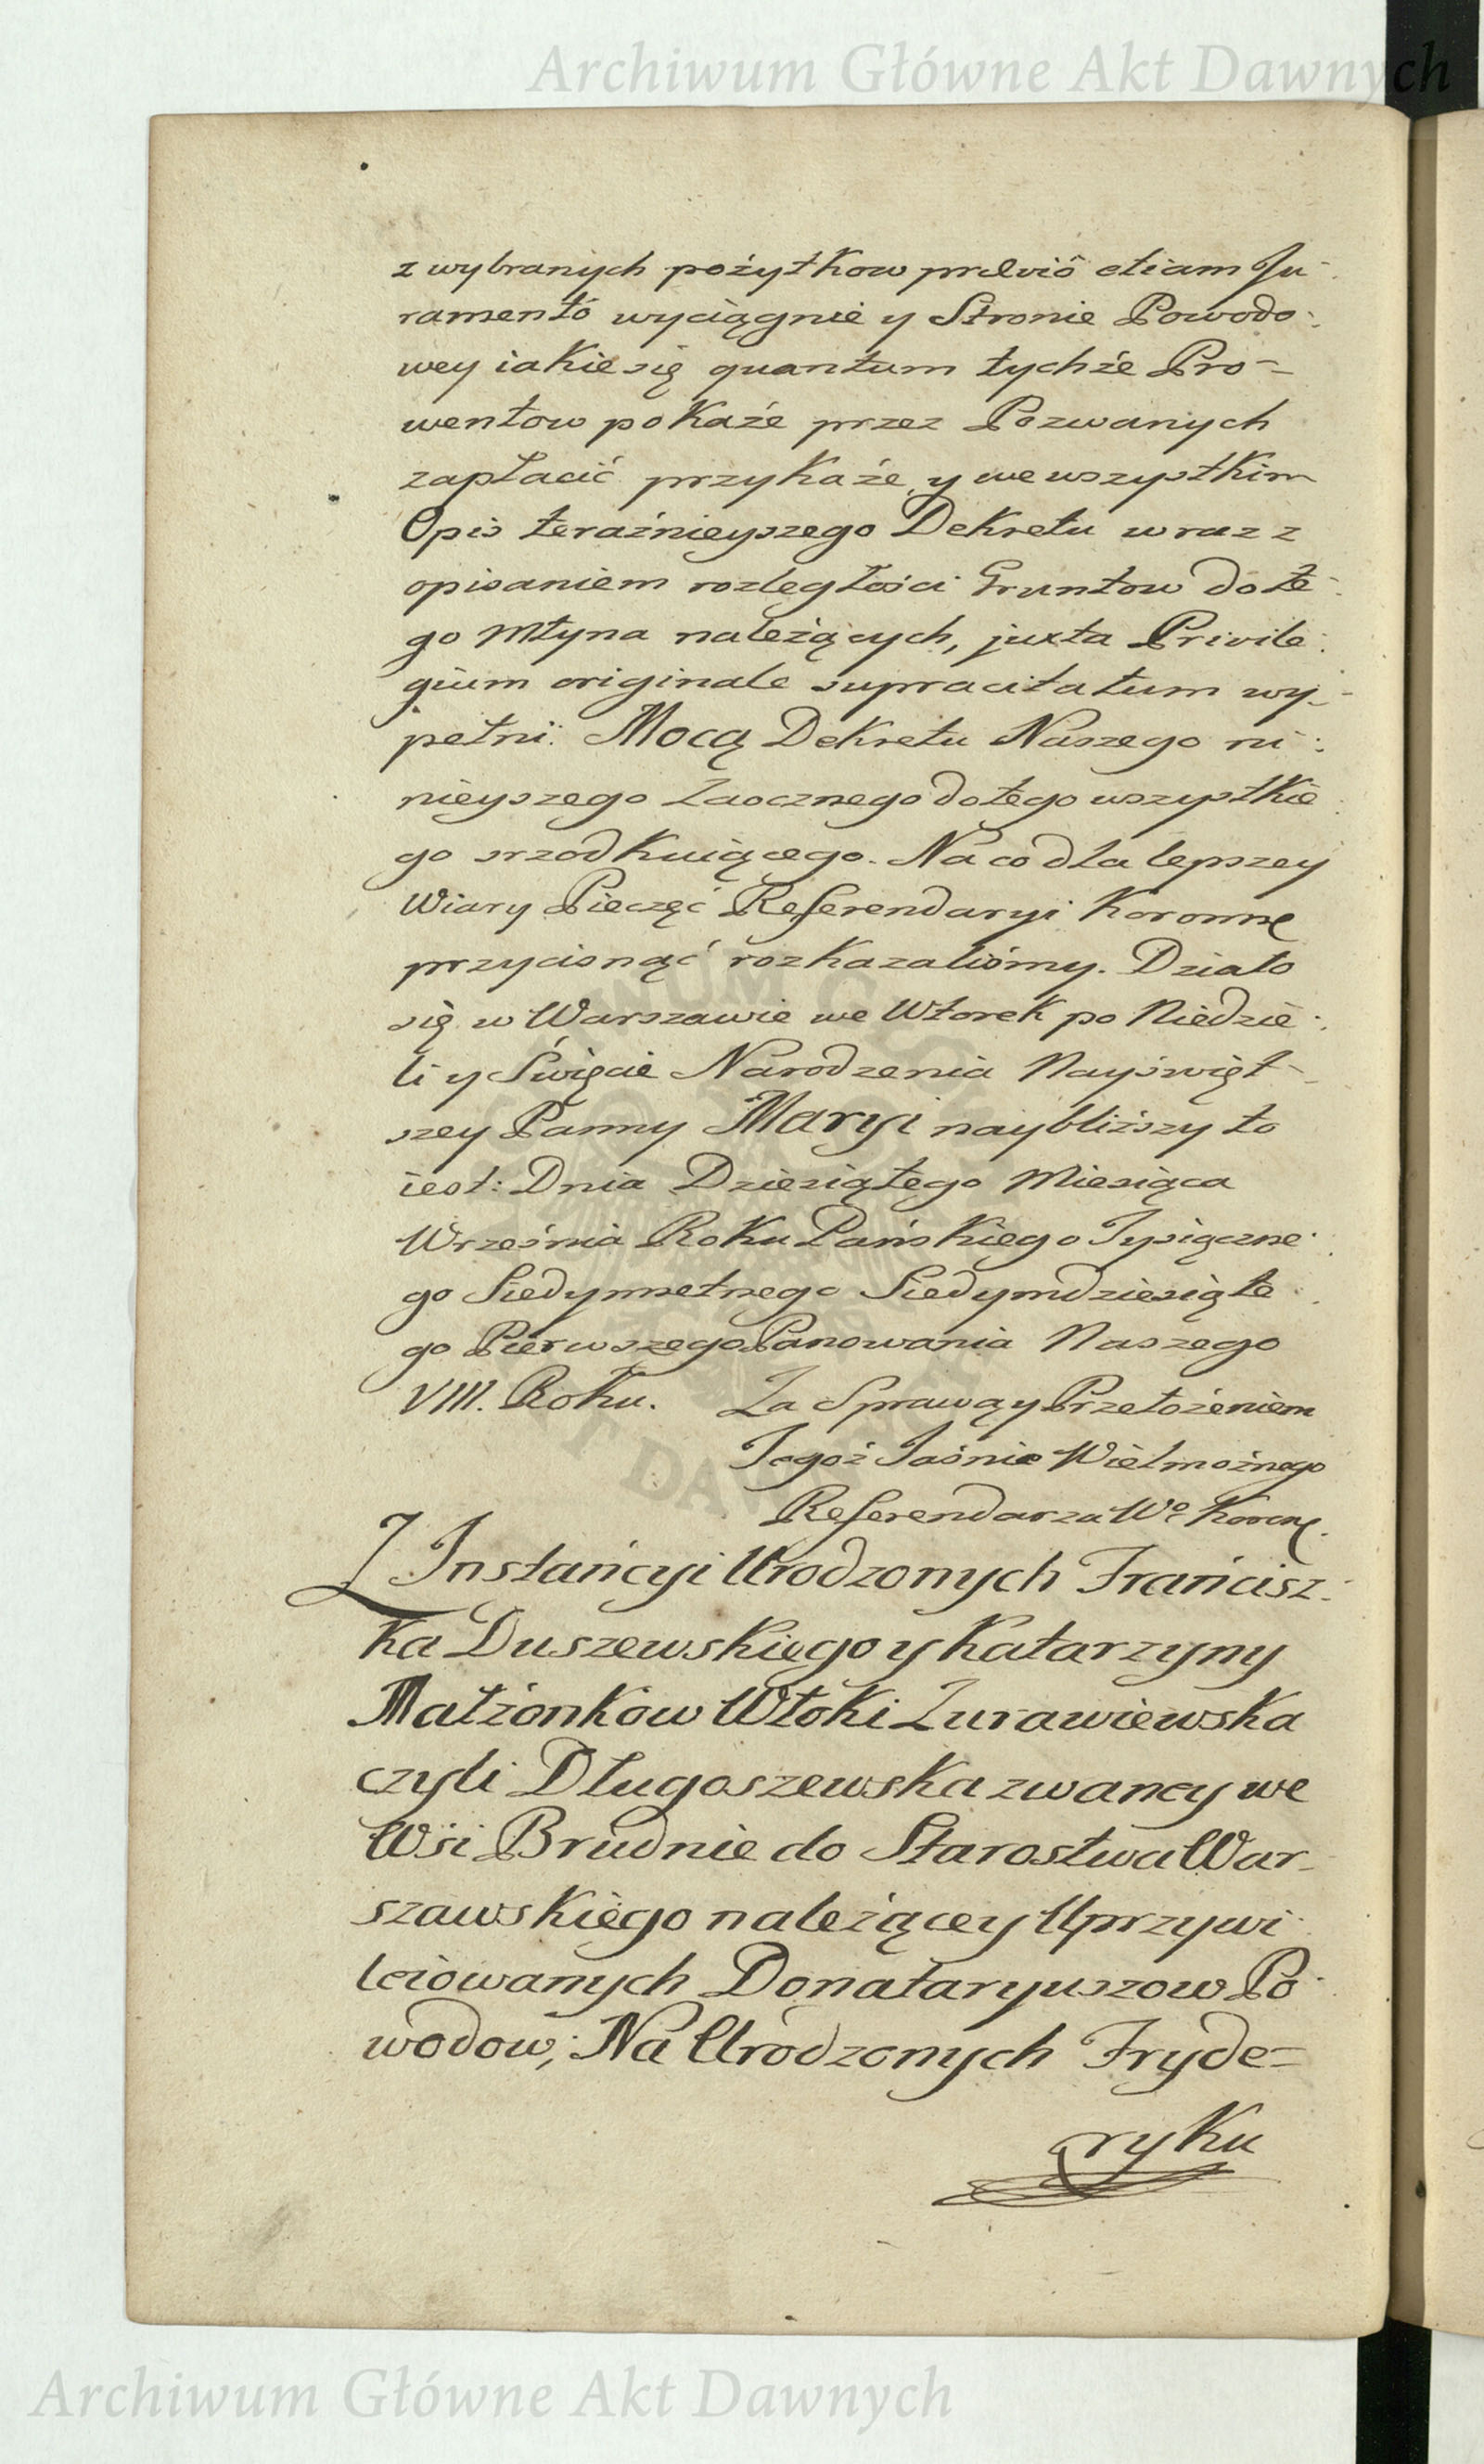 Archiwum Główne Akt Dawnych
z wybranych pożytkow prævió etiam Ju-
ramentó wyciągnie y Stronie Powodo-
wey iakie się quantum tychże Pro-
wentow pokaże przez Pozwanych
zapłacić przykaże, y we wszystkim
Opis teraźnieyszego Dekretu wraz z
opisaniem rozległości Gruntow do te-
go Młyna należących, juxta Privile-
gium originale supracitatum wy-
pełni. Mocą Dekretu Naszego ni-
nieyszego Zaocznego do tego wszystkie-
go srzodkuiącego. Na co dla lepszey
Wiary Pieczęć Referendaryi Koronne
przycisnąć rozkazaliśmy. Działo
się w Warszawie we Wtorek po Niedzie-
li y Święcie Narodzenia Nayświęt-
szey Panny Maryi naybliższy to
iest: Dnia Dziesiątego Miesiąca
Września Roku Pańskiego Tysiączne-
go Siedymsetnego Siedymdziesiąte-
go Pierwszego Panowania Naszego
VIII. Roku. Za Sprawą y Przełożeniem
Tegoż Jaśnie Wielmożnego
Referendarza Wo Koronn.
Z Instancyi Urodzonych Francisz-
ka Duszewskiego y Katarzyny
Małżonkow Włoki Zurawiewska
czyli Długoszewska zwaney we
Wsi Brudnie do Starostwa War-
szawskiego należącey Uprzywi-
leiowanych Donataryuszow Po-
wodow; Na Urodzonych Fryde=
ryku
Archiwum Główne Akt Dawnych